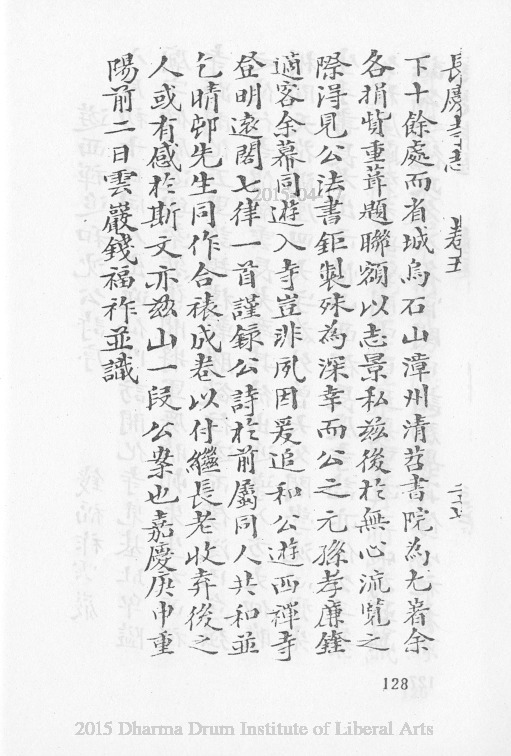 長慶寺志 卷五 二十七
下十餘處而省城烏石山漳州清莒書院為尤著余
各捐貲重葺題聯額以志景私茲後於無心流覽之
際得見公法書鉅製殊為深幸而公之元孫孝廉銓
適客余幕同遊入寺豈非夙因爰追和公遊西禪寺
登明遠閣七律一首謹錄公詩於前屬同人共和並
乞晴邨先生同作合裱成卷以付繼長老收弆後之
人或有感於斯文亦茲山一段公案也嘉慶庚申重
陽前二日雲巖錢福祚並識
128
2015 Dharma Drum Institute of Liberal Arts